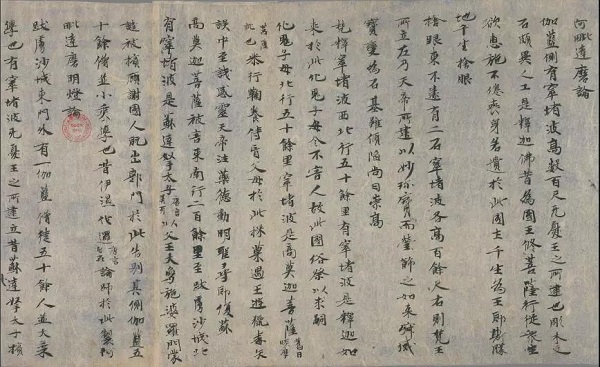 阿毗達磨論
伽藍側有窣堵波高數百尺无憂王之所建也彫木文
石頗異人工是釋迦佛昔為國王修菩薩行從衆生
欲惠施不倦喪身若遺於此國土千生為王即斯勝
地千生捨眼
捨眼東不遠有二石窣堵波各高百餘尺右則梵王
所立左乃天帝所建以妙珍寶而瑩飾之如來寂滅
寶變為石基雖傾陷尚曰崇高
梵釋窣堵波西北行五十餘里有窣堵波是釋迦如
來於此化鬼子母令不害人故此國俗祭以求嗣
化鬼子母北行五十餘里窣堵波是商莫迦菩薩舊曰睒摩
菩薩訛也恭行鞠養侍盲父母於此採菓遇王遊獵毒矢
誤中至誠感靈天帝注藥德動明聖尋即復蘇
商莫迦菩薩被害東南行二百餘里至跋虜沙城北
有窣堵波是蘇達拏太子以父王大象施婆羅門蒙
譴被擯顧謝國人既出郭門於此告別其側伽藍五
十餘僧並小乘學也昔伊濕伐邏唐言自在論師於此製阿
毗達磨明燈論
跋虜沙城東門外有一伽藍僧徒五十餘人並大乘
學也有窣堵波无憂王之所建立昔蘇達拏太子擯